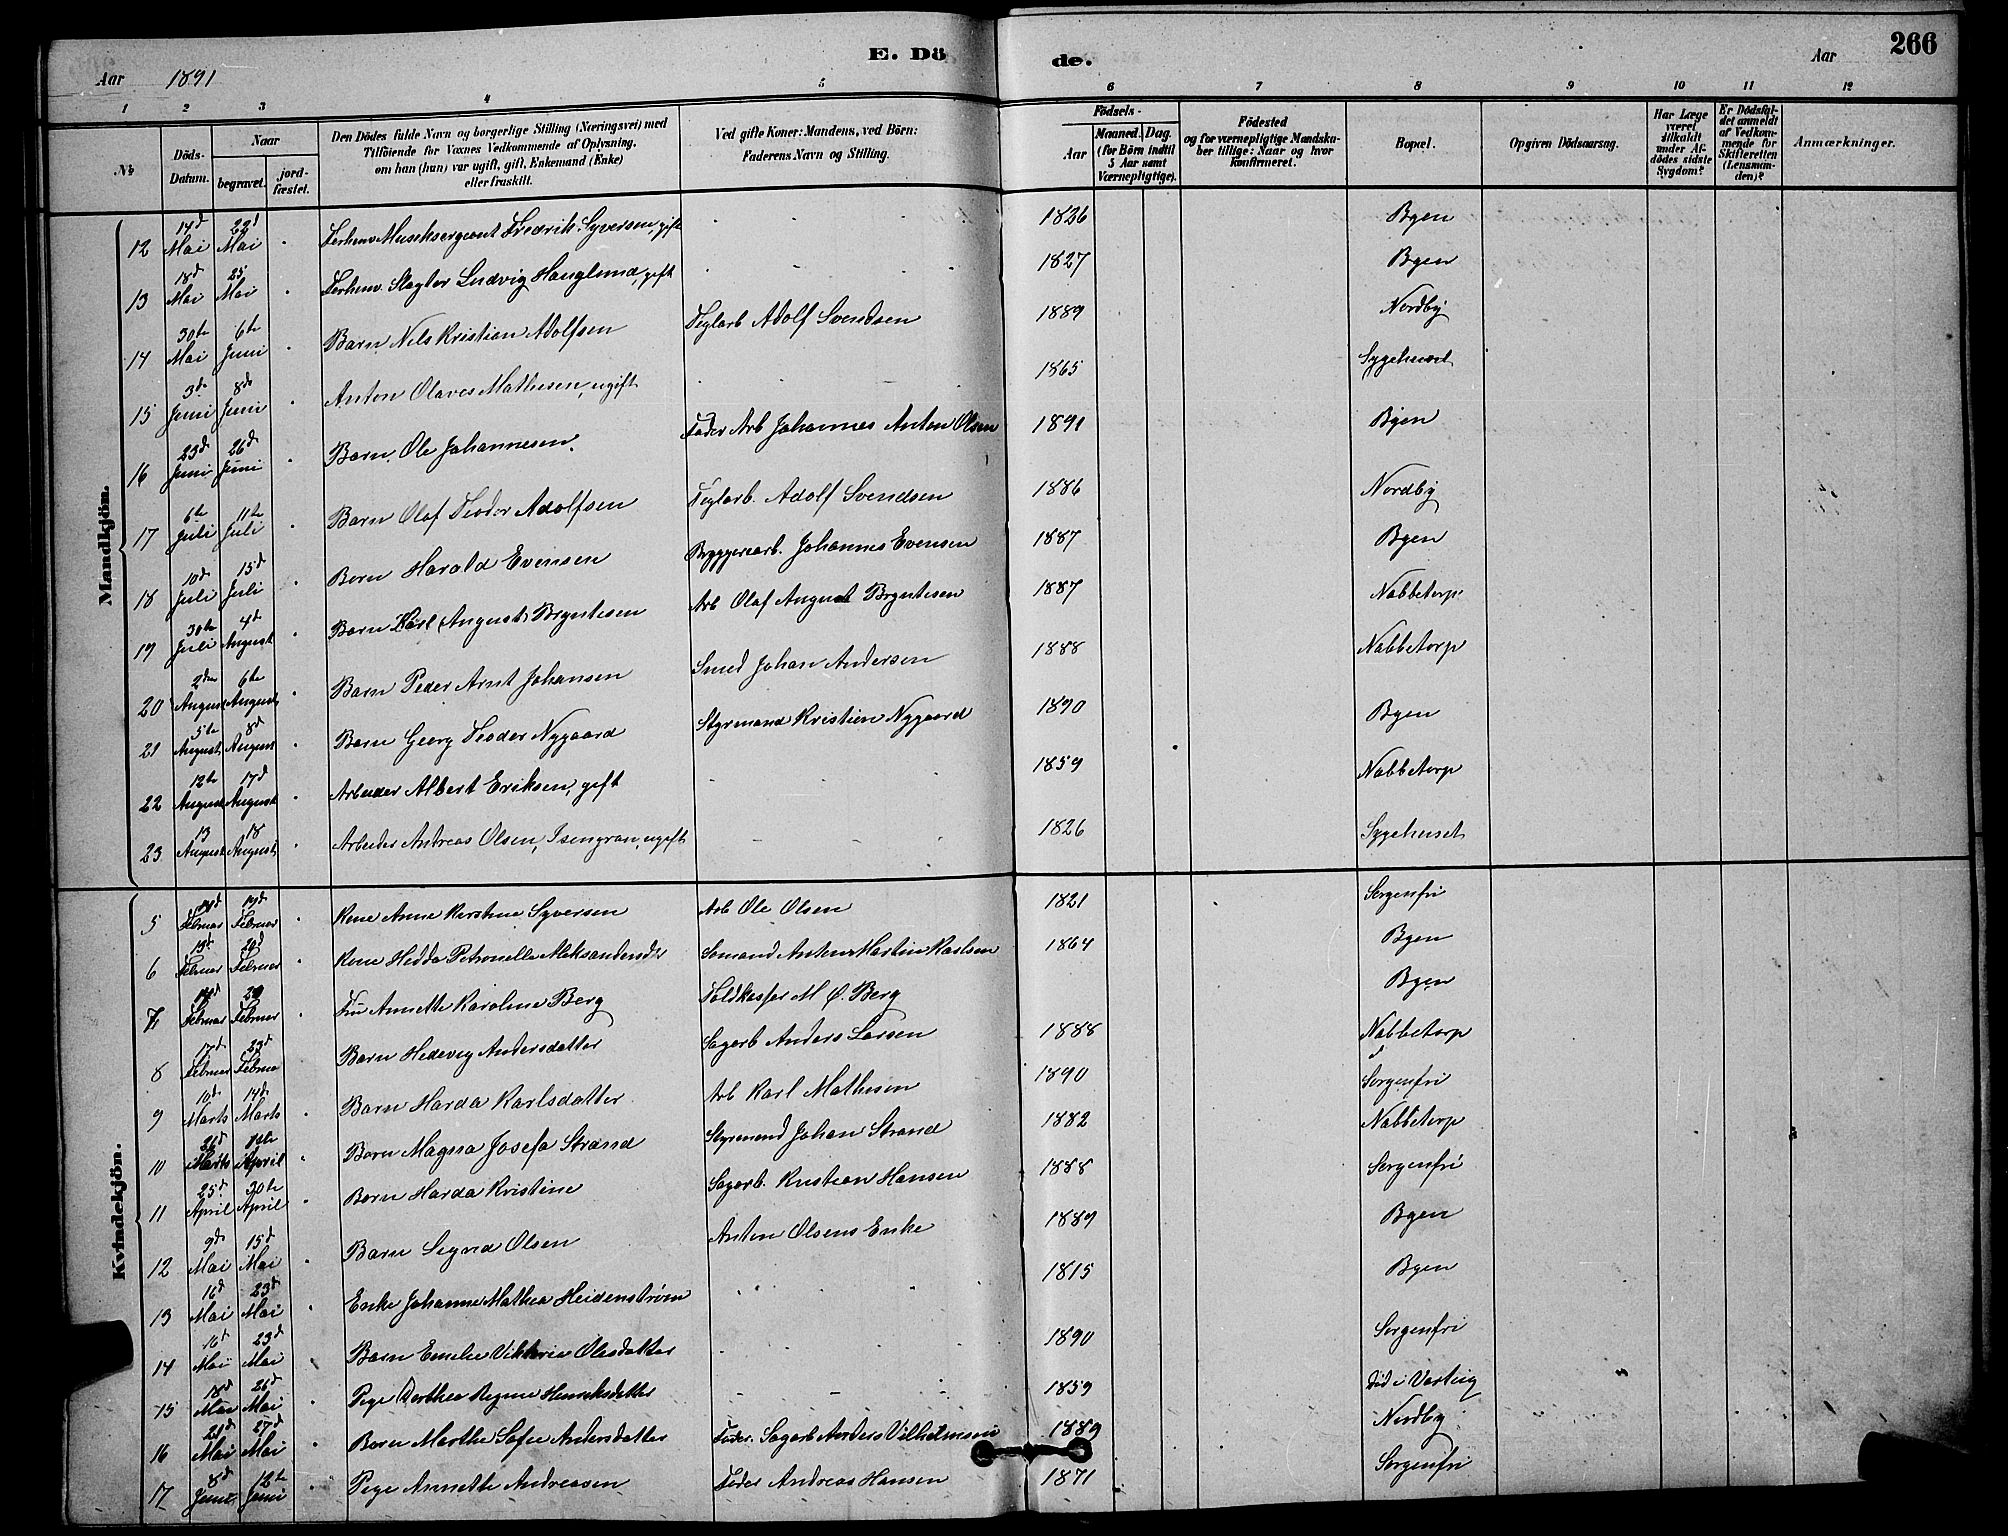 266
Aar 1891 E. Dö de. Aar
1 2 3 4 5 6 7 8 9 10 11 12
№ Döds-Datum. Naar begravet. jordfæstet. Den Dödes fulde Navn og borgerlige Stilling (Næringsvei) med Tilföiende for Voxnes Vedkommende af Oplysning, om han (hun) var ugift, gift, Enkemand (Enke) eller fraskilt. Ved gifte Koner: Mandens, ved Börn: Faderens Navn og Stilling. Födsels- Aar Maaned. Dag. (for Börn indtil 5 Aar samt Værnepligtige). Födested og for værnepligtige Mandskaber tillige: Naar og hvor konfirmeret. Bopæl. Opgiven Dödsaarsag. Har Læge været tilkaldt under Afdödes sidste Sygdom? Er Dödsfaldet anmeldt af Vedkommende for Skifteretten (Lensmanden)? Anmærkninger.
Mandkjön.
12 14d Mai 22d Mai " Forhenv Musiksergeant Fredrik Syversen, gift " " " 1826 Byen
13 18d Mai 25 Mai " Forhenv. Slagter Ludvig Hauglund, gift " " " 1827 Byen
14 30te Mai 6te Juni " Barn Nils Kristian Adolfsen Teglarb Adolf Svendsen 1889 Nordby
15 3d Juni 8de Juni " Anton Olaves Mathisen, ugift " " " 1865 Sygehuset
16 23d Juni 26d Juni " Barn Ole Johannesen. Fader Arb Johannes Anton Olsen 1891 Byen
17 6te Juli 11te Juli " Barn Olaf Teodor Adolfsen Teglarb. Adolf Svendsen 1886 Nordby
18 10d Juli 15d Juli " Barn Harald Evensen Bryggeriarb. Johannes Evensen 1887 Byen
19 30te Juli 4d August " Barn Karl August Bryntesen Arb Olaf August Bryntesen 1887 Nabbetorp
20 2den August 6te August " Barn Peder Arnt Johansen Smed Johan Andersen 1888 Nabbetorp
21 5te August 8d August " Barn Georg Teodor Nygaard Styrmand Kristian Nygaard 1890 Byen
22 12te August 17d August " Arbeider Albert Eriksen, gift " " 1859 Nabbetorp
23 13 August 18 August " Arbeider Andreas Olsen, Isengran, ugift " " 1826 Sygehuset
Kvindekjön.
5 Februar 19d Februar " Kone Anne Kerstine Syversen Arb Ole Olsen 1821 Sorgenfri
6 Februar 20d Februar " Kone Hedda Petronelle Aleksandersdtr Sømand Anton Martin Karlsen 1864 Byen
7 Februar Februar " Fru Annette Karoline Berg Toldkasser M. C. Berg Byen
8 17d Februar 23d Februar Barn Hedevig Andersdatter Sagarb Anders Larsen 1888 Nabbetorp
9 10d Marts 14d Marts " Barn Harda Karlsdatter Arb Karl Mathisen 1890 Sorgenfri
10 26d Marts April " Barn Magna Josefa Strand Styrmand Johan Strand 1882 Nabbetorp
11 25d April 30te April " Barn Harda Kristine Sagarb. Kristian Hansen 1888 Sorgenfri
12 9de Mai 15d Mai " Barn Signa Olsen Anton Olsens Enke 1889 Byen
13 16d Mai 23d Mai " Enke Johanne Mathea Heidenstrøm " " " 1815 Byen
14 16d Mai 23d Mai " Barn Emelie Viktoria Olesdatter " " " 1890 Sorgenfri
15 18d Mai 26d Mai " Pige Dorthea Regine Henriksdatter " " " 1859 Død i Varteig
16 21d Mai 27d Mai " Barn Marthe Sofie Andersdatter Fader. Sagarb Anders Vilhelmsen 1889 Nordby
17 8d Juni 12te Juni " Pige Annette Andreasen Fader Andreas Hansen 1871 Sorgenfri